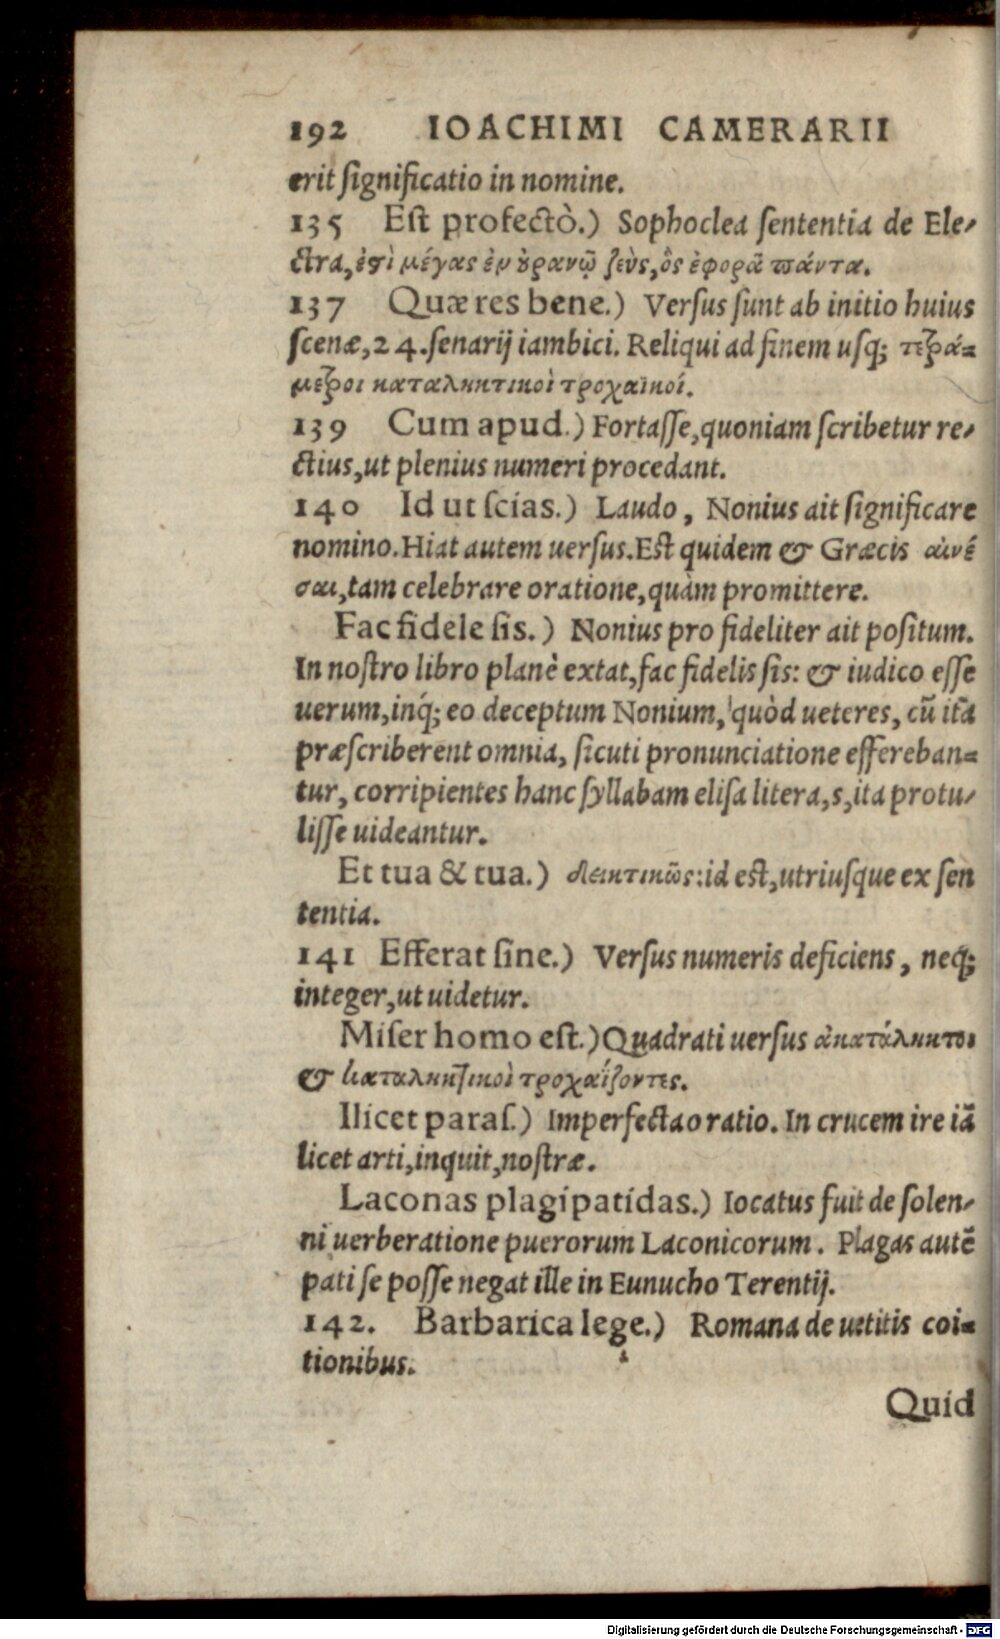 192 IOACHIMI CAMERARII
erit ſignificatio in nomine.
135 Eſt profectò.) Sophoclea ſententia de Ele-
ctra, ἐϛὶ μέγας ἐν ȣ̓ρανῷ ζεὺς, ὃς ἐφορᾷ πάντα.
137 Quæ res bene.) Verſus ſunt ab initio huius
ſcenæ, 24. ſenarij iambici. Reliqui ad finem uſq; τετρά-
μετροι καταληκτικοὶ τροχαϊκοί.
139 Cum apud.) Fortaſſe, quoniam ſcribetur re-
ctius, ut plenius numeri procedant.
140 Id ut ſcias.) Laudo, Nonius ait ſignificare
nomino. Hiat autem uerſus. Eſt quidem & Græcis αἰνέ
σαι, tam celebrare oratione, quàm promittere.
Fac fidele ſis.) Nonius pro fideliter ait poſitum.
In noſtro libro planè extat, fac fidelis ſis: & iudico eſſe
uerum, inq́; eo deceptum Nonium, quòd ueteres, cũ ita
præſcriberent omnia, ſicuti pronunciatione effereban-
tur, corripientes hanc ſyllabam eliſa litera, s, ita protu-
liſſe uideantur.
Et tua & tua.) δεικτικῶς: id eſt, utriuſque ex ſen
tentia.
141 Efferat ſine.) Verſus numeris deficiens, neq;
integer, ut uidetur.
Miſer homo eſt.) Quadrati uerſus ἀκατάληκτοι
& καταληκτικοὶ τροχαΐζοντες.
Ilicet paraſ.) Imperfecta oratio. In crucem ire iã
licet arti, inquit, noſtræ.
Laconas plagipatidas.) Iocatus fuit de ſolen-
ni uerberatione puerorum Laconicorum. Plagas autẽ
pati ſe poſſe negat ille in Eunucho Terentij.
142. Barbarica lege.) Romana de uetitis coi-
tionibus.
Quid
Digitalisierung gefördert durch die Deutsche Forschungsgemeinschaft - DFG